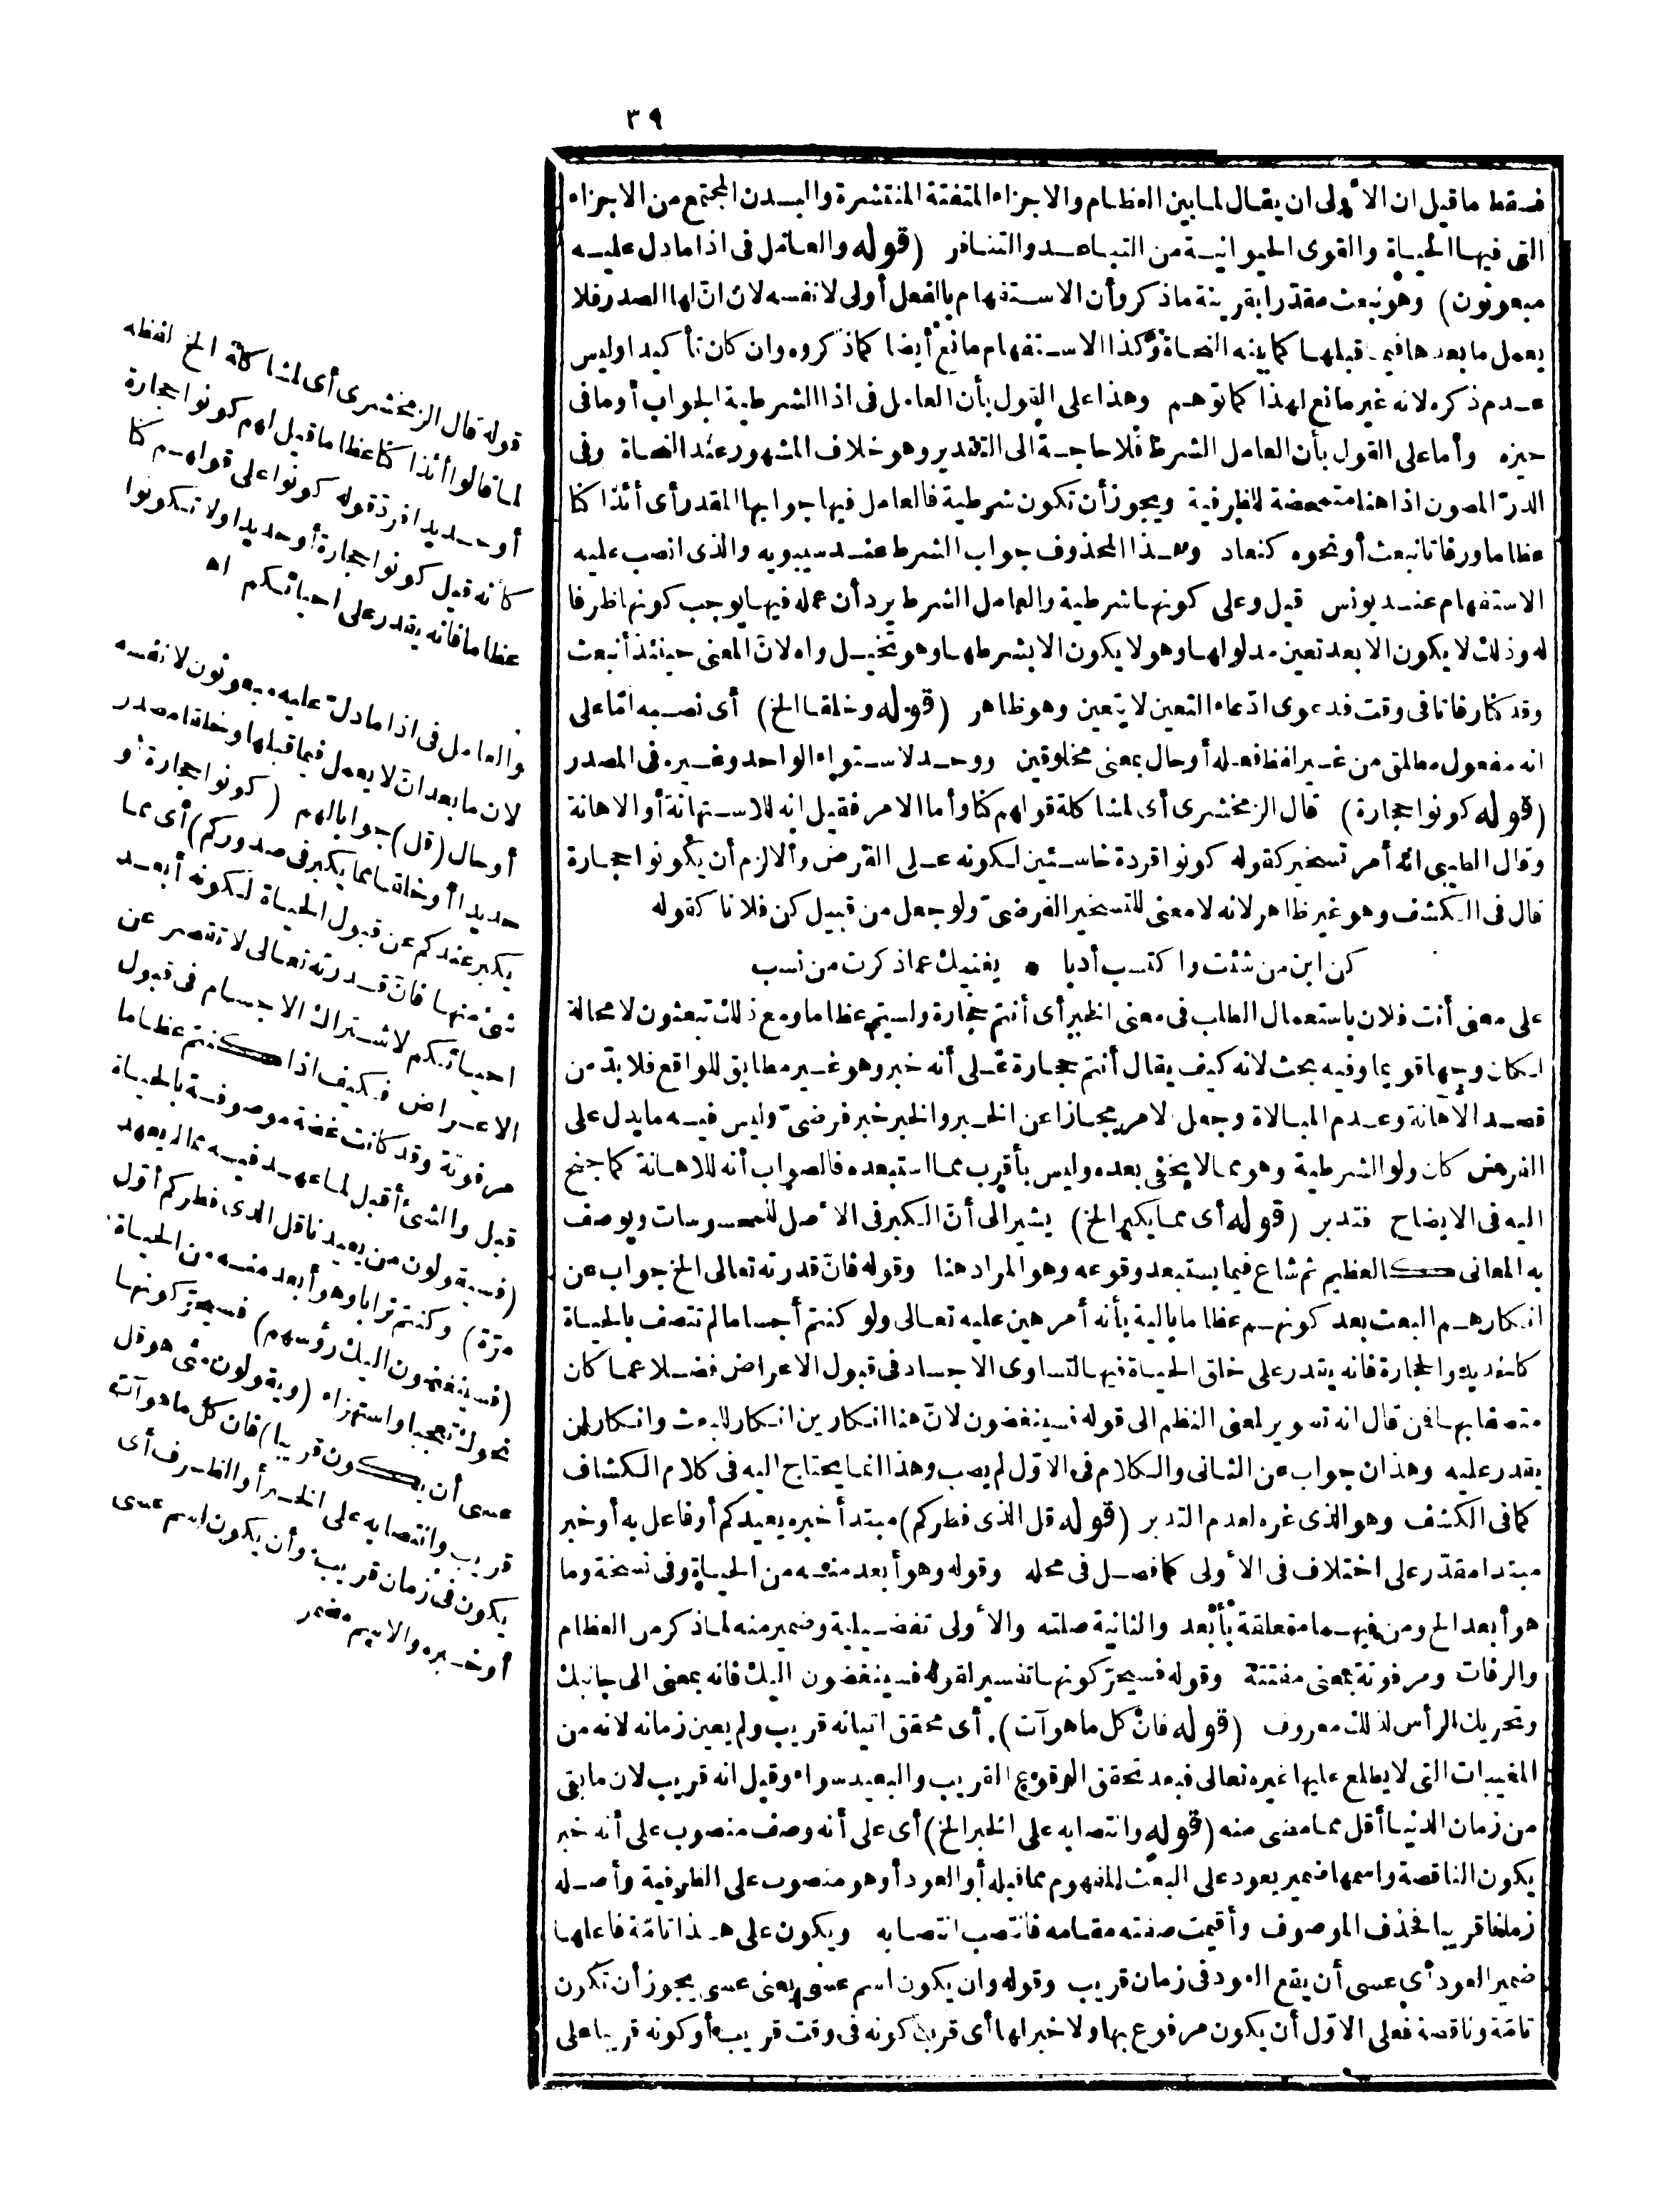 ٣٩
فسقط ما قيل ان الأولى ان يقال لما بين العظام والاجزاء المتفتتة المنتشرة والبدن المجتمع من الاجزاء
التى فيها الحياة والقوى الحيوانية من التباعد والتنافر (قوله والعامل فى اذا ما دل عليه
مبعوثون) وهو نبعث مقدّرا بقرينة ما ذكر وأن الاستفهام بالفعل أولى لا نفسه لان انّ لها الصدر فلا
يعمل ما بعدها فيما قبلها كما بينه النحاة وكذا الاستفهام مانع أيضا كما ذكروه وان كان تأكيدا وليس
عدم ذكره لانه غير مانع لهذا كما توهم وهذا على القول بأن العامل فى اذا الشرطية الجواب أو ما فى
حيزه وأما على القول بأن العامل الشرط فلا حاجة الى التقدير وهو خلاف المشهور عند النحاة وفى
الدرّ المصون اذا هنا متمحضة للظرفية ويجوز أن تكون شرطية فالعامل فيها جوابها المقدر أى أئذا كنا
عظاما ورفاتا نبعث أو نحوه كنعاد وهذا المحذوف جواب الشرط عند سيبويه والذى انصب عليه
الاستفهام عند يونس قيل وعلى كونها شرطية والعامل الشرط يرد أن عمله فيها يوجب كونها ظرفا
له وذلك لا يكون الا بعد تعين مدلولها وهو لا يكون الا بشرطها وهو تخيل واه لانّ المعنى حينئذ أنبعث
وقد كنا رفاتا فى وقت فدعوى ادّعاء التعين لا يتعين وهو ظاهر (قوله وخلقا الخ) أى نصبه امّا على
انه مفعول مطلق من غير لفظ فعله أو حال بمعنى مخلوقين ووحد لاستواء الواحد وغيره فى المصدر
(قوله كونوا حجارة) قال الزمخشرى أى لمشاكلة قولهم كنا وأما الامر فقيل انه للاستهانة أو الاهانة
وقال الطيبى انّه أمر تسخير كقوله كونوا قردة خاسئين لكونه على الفرض والا لزم أن يكونوا حجارة
قال فى الكشف وهو غير ظاهر لانه لا معنى للتسخير الفرضىّ ولو جعل من قبيل كن فلانا كقوله
كن ابن من شئت واكتسب أدبا * يغنيك عما ذكرت من نسب
على معنى أنت فلان باستعمال الطلب فى معنى الخبر أى أنتم حجارة ولستم عظاما ومع ذلك تبعثون لا محالة
لكان وجها قويما وفيه بحث لانه كيف يقال أنتم حجارة على أنه خبر وهو غير مطابق للواقع فلا بدّ من
قصد الاهانة وعدم المبالاة وجعل الامر مجازا عن الخبر والخبر خبر فرضىّ وليس فيه ما يدل على
الفرض كان ولو الشرطية وهو مما لا يخفى بعده وليس بأقرب مما استبعده فالصواب أنه للاهانة كما جنح
اليه فى الايضاح فتدبر (قوله أى مما يكبر الخ) يشير الى أنّ الكبر فى الاصل للمحسوسات ويوصف
به المعانى كالعظيم ثم شاع فيما يستبعد وقوعه وهو المراد هنا وقوله فانّ قدرته تعالى الخ جواب عن
انكارهم البعث بعد كونهم عظاما بالية بأنه أمر هين عليه تعالى ولو كنتم أجساما لم تتصف بالحياة
كالحديد والحجارة فانه يقدر على خلق الحياة فيها لتساوى الاجساد فى قبول الاعراض فضلا عما كان
متصفا بها فمن قال انه تسوير لمعنى النظم الى قوله فسينغضون لانّ هنا انكارين انكار للبعث وانكار لمن
يقدر عليه وهذان جواب عن الثانى والكلام فى الاوّل لم يصب وهذا انما يحتاج اليه فى كلام الكشاف
كما فى الكشف وهو الذى غره لعدم التدبر (قوله قل الذى فطركم) مبتدأ خبره يعيدكم أو فاعل به أو خبر
مبتدا مقدّر على اختلاف فى الاولى كما فصل فى محله وقوله وهو أبعد منه من الحياة وفى نسخة وما
هو أبعد الخ ومن فيهما متعلقة بأبعد والثانية صلته والاولى تفضيلية وضمير منه لما ذكر من العظام
والرفات ومرفوتة بمعنى مفتتة وقوله فسيحرّكونها تفسير لقوله فسينغضون اليك فانه بمعنى الى جانبك
وتحريك الرأس لذلك معروف (قوله فانّ كل ما هو آت). أى محقق اتيانه قريب ولم يعين زمانه لانه من
المغيبات التى لا يطلع عليها غيره تعالى فبعد تحقق الوقوع القريب والبعيد سواء وقيل انه قريب لان ما بقى
من زمان الدنيا أقل مما مضى منه (قوله وانتصابه على الخبر الخ) أى على أنه وصف منصوب على أنه خبر
يكون الناقصة واسمها ضمير يعود على البعث المفهوم مما قبله أو العود أو هو منصوب على الظرفية وأصله
زمانا قريبا فحذف الموصوف وأقيمت صفته مقامه فانتصب انتصابه ويكون على هذا تامّة فاعلها
ضمير العود أى عسى أن يقع العود فى زمان قريب وقوله وان يكون اسم عسى يعنى عسى يجوز أن تكون
تامّة وناقصة فعلى الاوّل أن يكون مرفوع بها ولا خبر لها أى قرب كونه فى وقت قريب أو كونه قريبا على
قوله قال الزمخشرى أى لمشاكلة الخ لفظه
لما قالوا أئذا كنا عظاما قيل لهم كونوا حجارة
أو حديدا فرد قوله كونوا على قولهم كنا
كأنه قيل كونوا حجارة أو حديدا ولا تكونوا
عظاما فانه يقدر على احيائكم اه
والعامل فى اذا ما دلّ عليه مبعوثون لا نفسه
لان ما بعد انّ لا يعمل فيما قبلها وخلقا مصدر
أو حال (قل) جوابا لهم (كونوا حجارة أو
حديدا أو خلقا مما يكبر فى صدوركم) أى مما
يكبر عندكم عن قبول الحياة لكونه أبعد
شئ منها فانّ قدرته تعالى لا تقصر عن
احيائكم لاشتراك الاجسام فى قبول
الاعراض فكيف اذا كنتم عظاما
مرفوتة وقد كانت غضة موصوفة بالحياة
قبل والشئ أقبل لما عهد فيه مما لم يعهد
(فسيقولون من يعيدنا قل الذى فطركم أوّل
مرّة) وكنتم ترابا وهو أبعد منه من الحياة
(فسينغضون اليك رؤسهم) فسيحرّكونها
نحوك تعجبا واستهزاء (ويقولون متى هو قل
عسى أن يكون قريبا) فان كل ما هو آت
قريب وانتصابه على الخبر أو الظرف أى
يكون فى زمان قريب وأن يكون اسم عسى
أو خبره والاسم مضمر